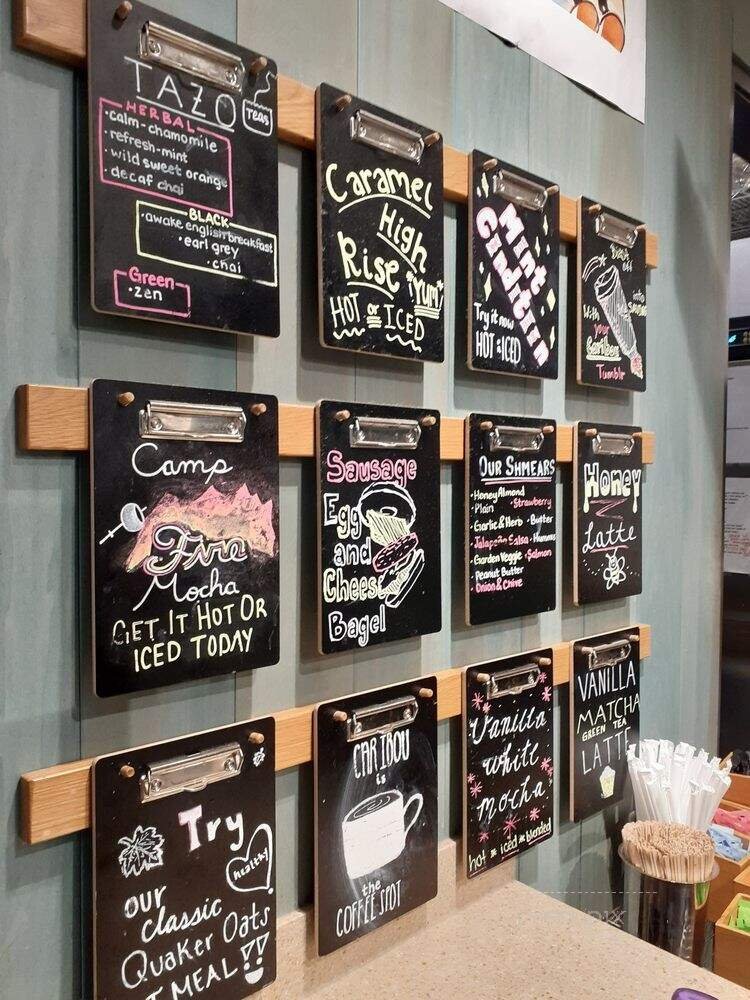 TAZO
Teas
HERBAL
•calm-chamomile
•refresh-mint
•wild sweet orange
•decaf chai
BLACK
•awake english breakfast
•earl grey
•chai
Green
•Zen
Caramel
High
Rise
"YUM"
HOT or ICED
Mint
Condition
Try it now
HOT or ICED
into
With
your
Caribou
Tumblr
Camp
Fire
Mocha
GET IT HOT OR
ICED TODAY
Sausage
Egg
and
Cheese
Bagel
OUR SHMEARS
•Honey Almond
•Plain •Strawberry
•Garlic & Herb •Butter
•Jalapeño Salsa •Hummus
•Garden Veggie •Salmon
•Peanut Butter
•Onion & Chive
Honey
Latte
Try
healthy
our
classic
Quaker Oats
MEAL!!
CARIBOU
is
the
COFFEE SPOT
Vanilla
white
mocha
hot * iced * blended
VANILLA
MATCHA
GREEN TEA
LATTE